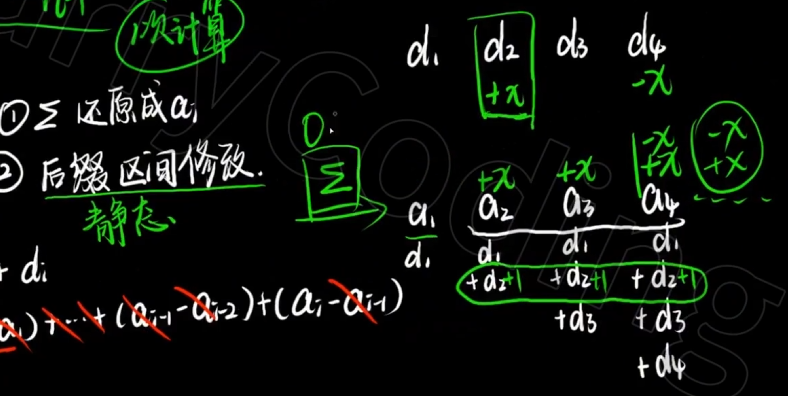 1次计算
① Σ 还原成aᵢ
② 后缀区间修改.
静态、
+ dᵢ
a₁)+…+(aᵢ₋₁-aᵢ₋₂)+(aᵢ-aᵢ₋₁)
O.
Σ
d₁ d₂ d₃ d₄
+x -x
-x -x
+x +x +x +x
a₁ a₂ a₃ a₄
d₁ d₁ d₁ d₁
+d₂+1 +d₂+1 +d₂+1
+d₃ +d₃
+d₄